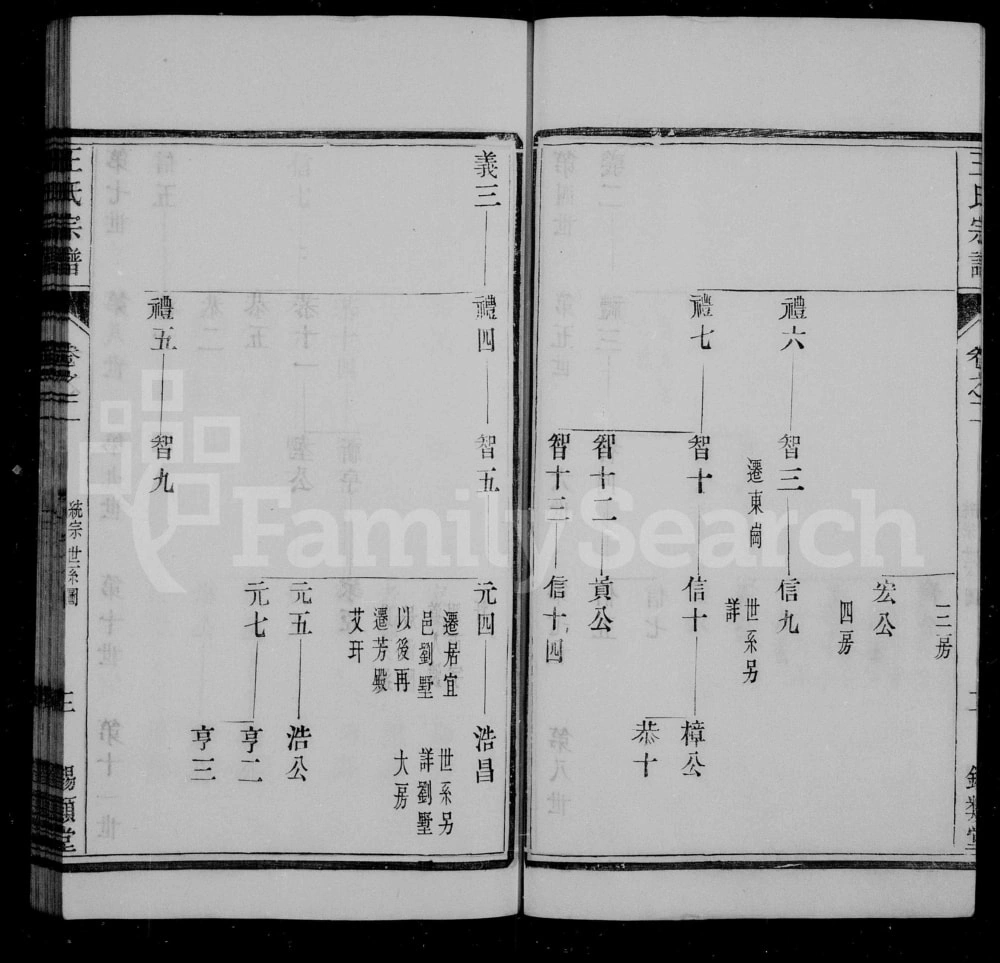 王氏宗譜
卷之二
二
三房
宏公
四房
禮六
智三
信九
遷東崗
世系另
詳
禮七
智十
信十
樟公
恭十
智十二
貢公
智十三
信十四
義三
禮四
智五
元四
浩昌
遷居宜
邑劉墅
以後再
遷芳殿
艾玕
世系另
詳劉墅
大房
元五
浩公
元七
亨二
亨三
禮五
智九
王氏宗譜
卷之二
統宗世系圖
三
錫類堂
FamilySearch